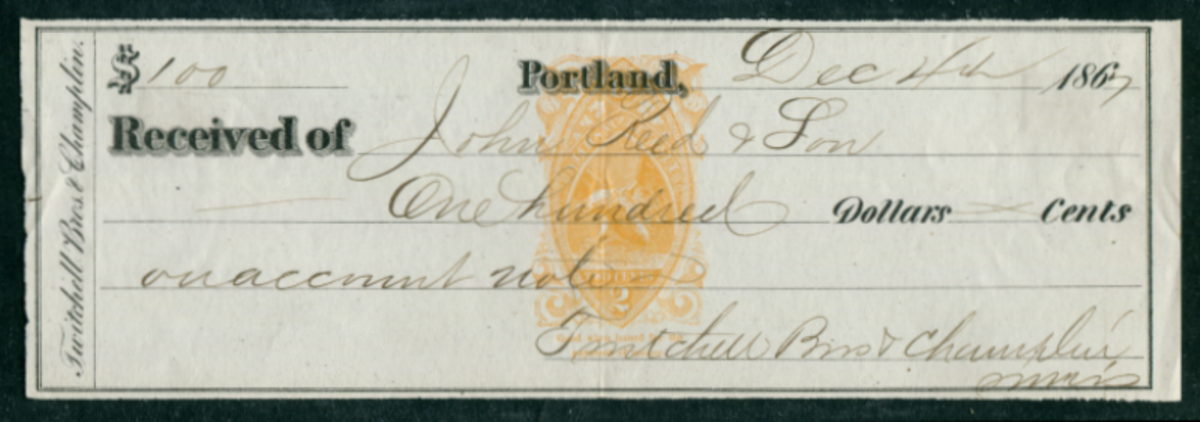 Twitchell Bros. & Champlin.
$100 Portland, Dec 4th 1867
Received of John Reed & Son
One hundred Dollars Cents
on account note
Twitchell Bros & Champlin